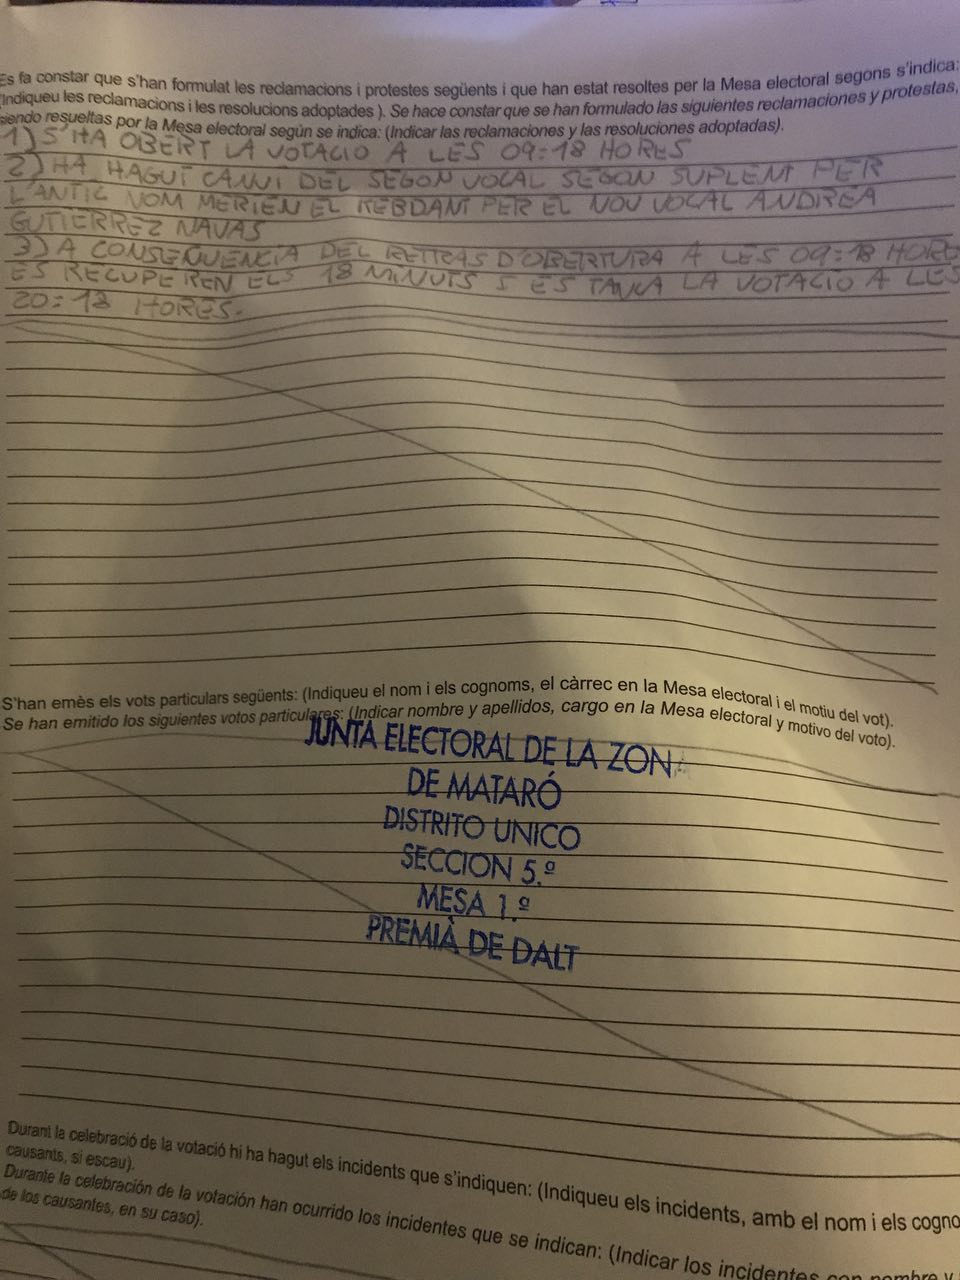 Es fa constar que s'han formulat les reclamacions i protestes següents i que han estat resoltes per la Mesa electoral segons s'indica:
(Indiqueu les reclamacions i les resolucions adoptades ). Se hace constar que se han formulado las siguientes reclamaciones y protestas,
siendo resueltas por la Mesa electoral según se indica: (Indicar las reclamaciones y las resoluciones adoptadas).
1) S'HA OBERT LA VOTACIO A LES 09:18 HORES
2) HA HAGUT CANVI DEL SEGON VOCAL SEGON SUPLENT PER
L'ANTIC NOM MERIEN EL REBDANT PER EL NOU VOCAL ANDREA
GUTIERREZ NAVAS
3) A CONSEQUENCIA DEL RETTRAS D'OBERTURA A LES 09:18 HORE
ES RECUPEREN ELS 18 MINUTS I ES TANCA LA VOTACIO A LES
20:18 HORES.
S'han emès els vots particulars següents: (Indiqueu el nom i els cognoms, el càrrec en la Mesa electoral i el motiu del vot).
Se han emitido los siguientes votos particulares: (Indicar nombre y apellidos, cargo en la Mesa electoral y motivo del voto).
JUNTA ELECTORAL DE LA ZONA
DE MATARÓ
DISTRITO UNICO
SECCION 5.ª
MESA 1.ª
PREMIÀ DE DALT
Durant la celebració de la votació hi ha hagut els incidents que s'indiquen: (Indiqueu els incidents, amb el nom i els cogno
causants, si escau).
Durante la celebración de la votación han ocurrido los incidentes que se indican: (Indicar los incidentes con nombre y
de los causantes, en su caso).